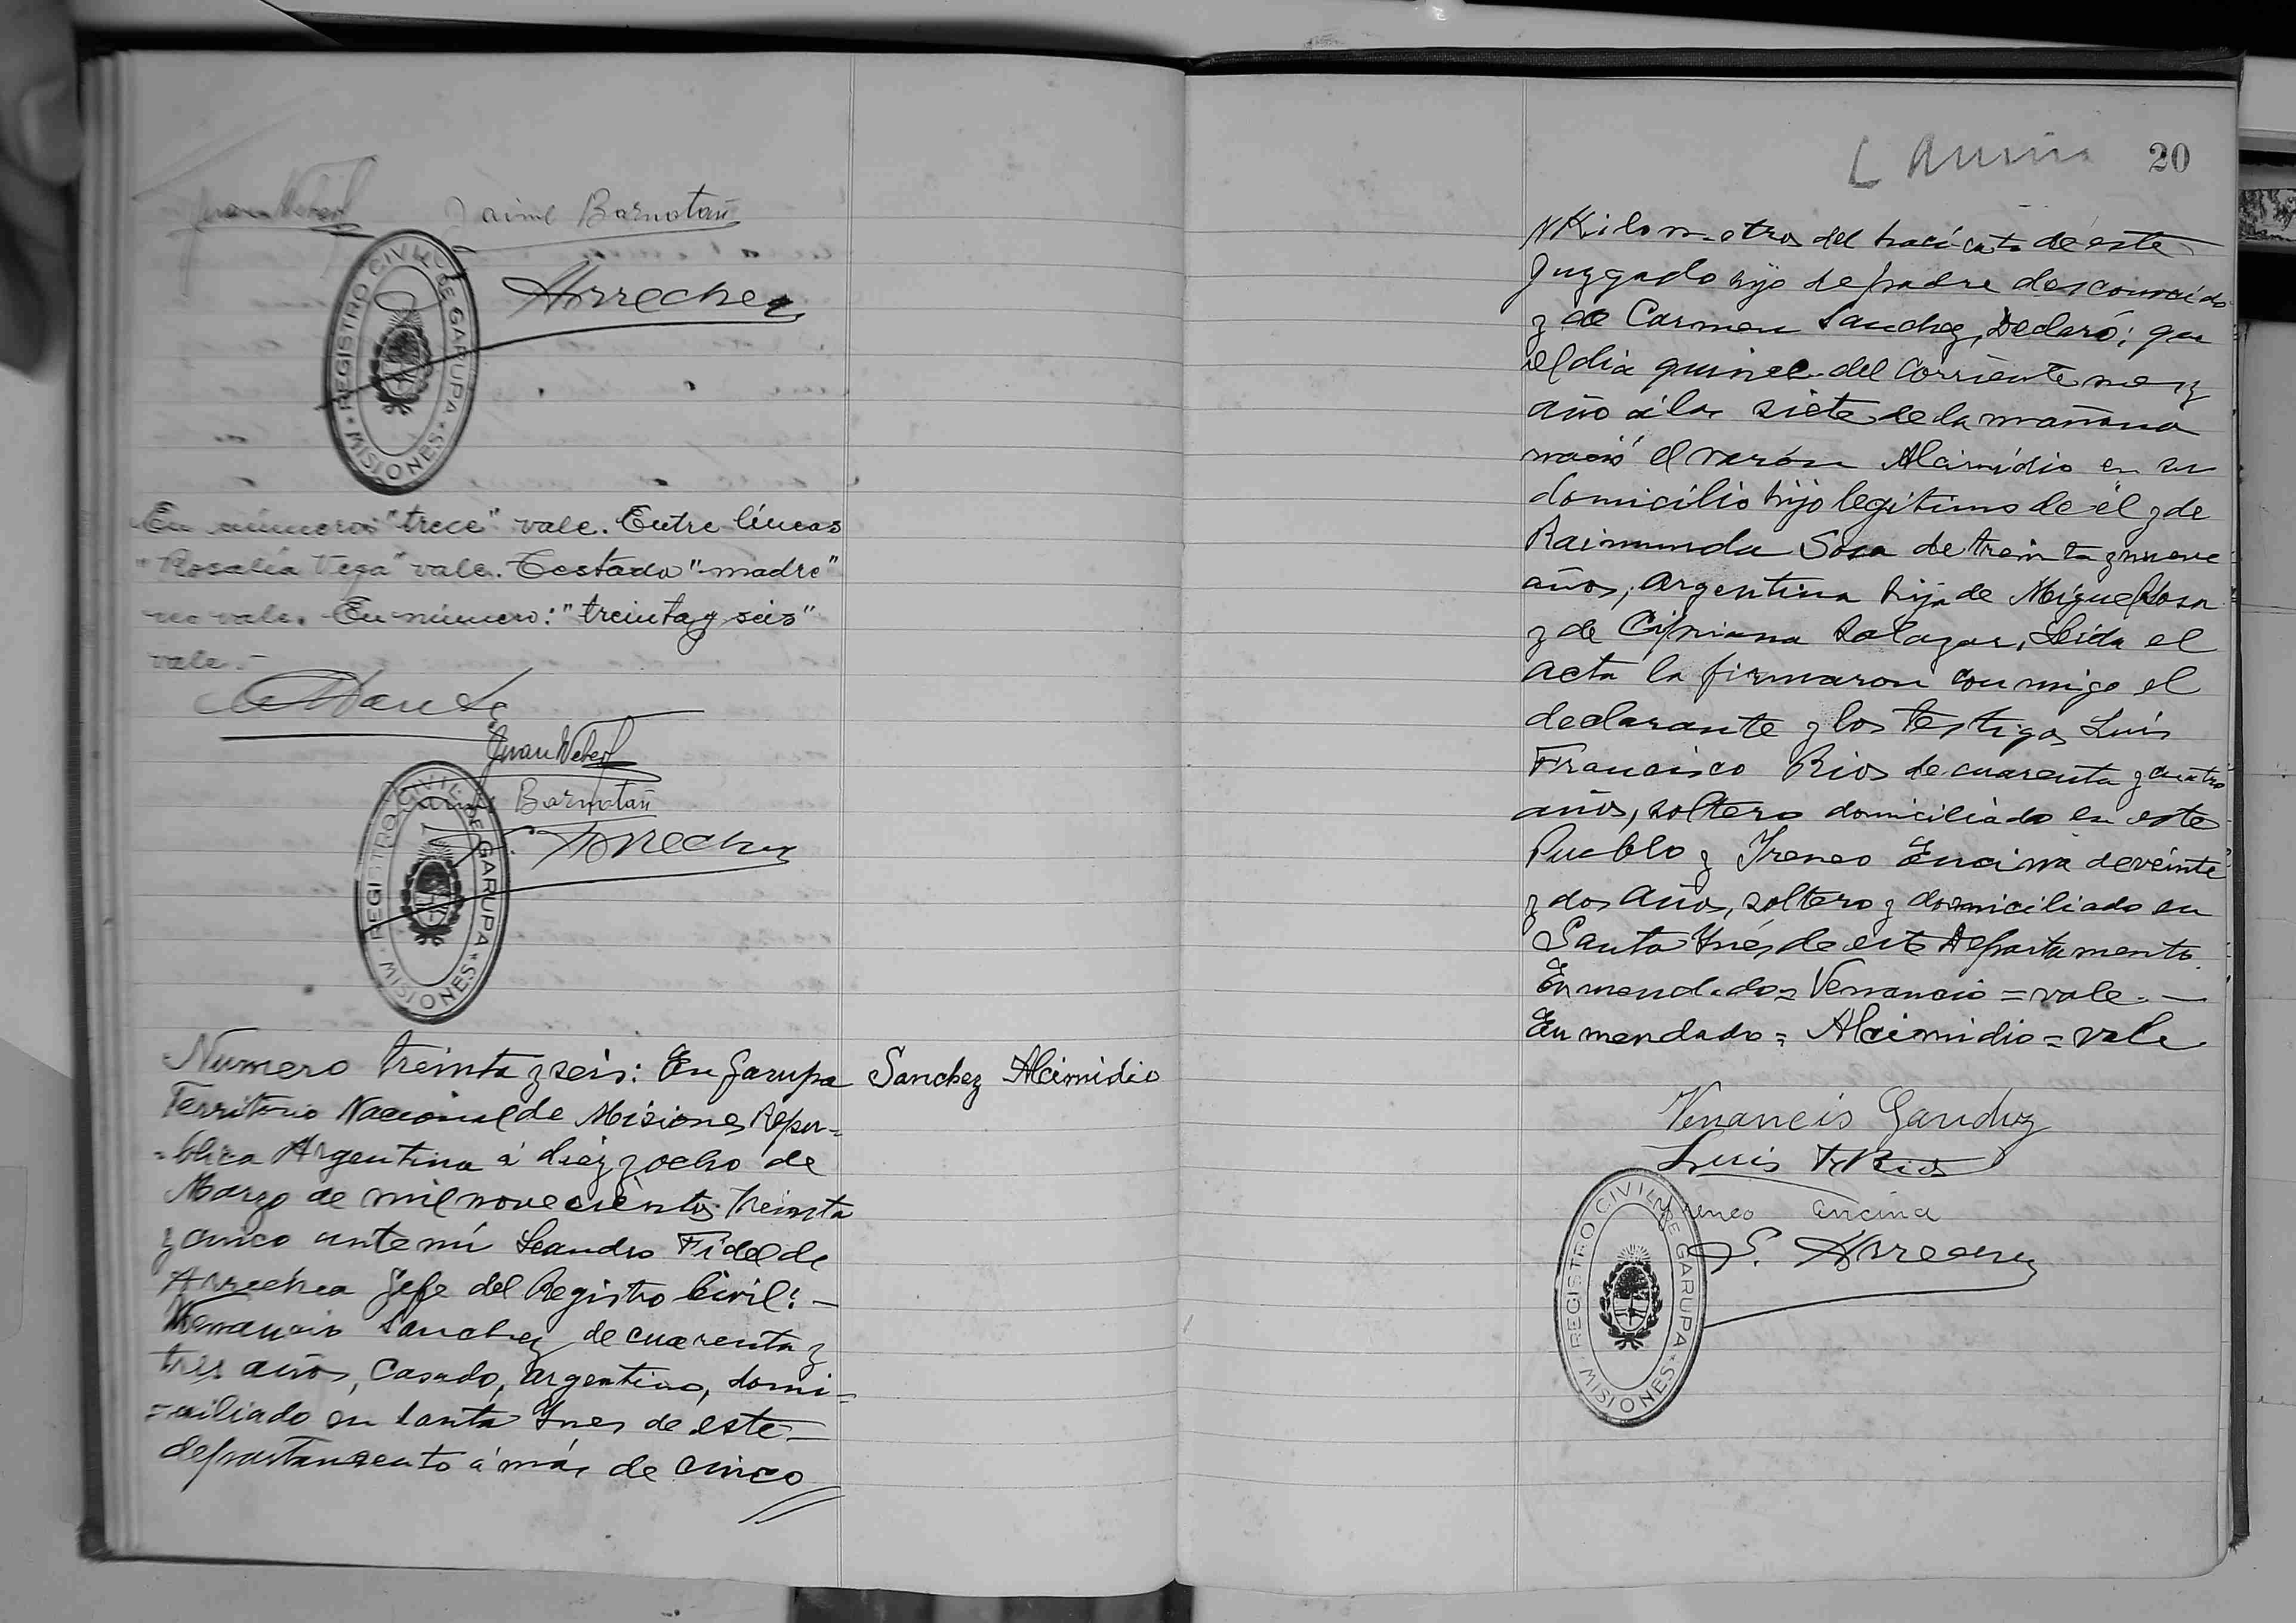 Juan Weberf Jaime Barnatañ
REGISTRO CIVIL DE GARUPA
MISIONES
Arrechea
En número: "trece" vale. Entre líneas
"Rosalía Vega" vale. Testado "madre"
no vale. En número: "treinta y seis"
vale.-
Juan Weberf
Barnatañ
REGISTRO CIVIL DE GARUPA
MISIONES
Arrechea
Numero treinta y seis: En Garupa
Territorio Nacional de Misiones Repu-
-blica Argentina á diez y ocho de
Marzo de mil novecientos treinta
y cinco ante mi Leandro Fidel de
Arrechea Gefe del Registro Civil: -
Venancio Sanchez de cuarenta y
tres años, Casado, argentino, domi=
=ciliado en Santa Ynes de este
departamento á más de cinco
Sanchez Alcimidio
20
Kilometros del de este
Juzgado hijo de padre desconocido
y de Carmen Sanchez, Declaró: que
el dia quince del corriente mes y
año á las siete de la mañana
nació el varón Alcimidio en su
domicilio hijo legitimo de él y de
Raimunda Sosa de treinta y nueve
años, argentina hija de Miguel Sosa
y de Cipriana Salazar, Leida el
acta la firmaron conmigo el
declarante y los testigos Luis
Francisco Rios de cuarenta y cuatro
años, soltero domiciliado en este
Pueblo y Ireneo Encina de veinte
y dos años, soltero y domiciliado en
Santa Ynés de este Departamento.
Enmendado = Venancio = vale. -
Enmendado = Alcimidio = vale
Venancio Sanchez
Luis F. Rios
Yreneo Encina
REGISTRO CIVIL DE GARUPA
MISIONES
Arrechea